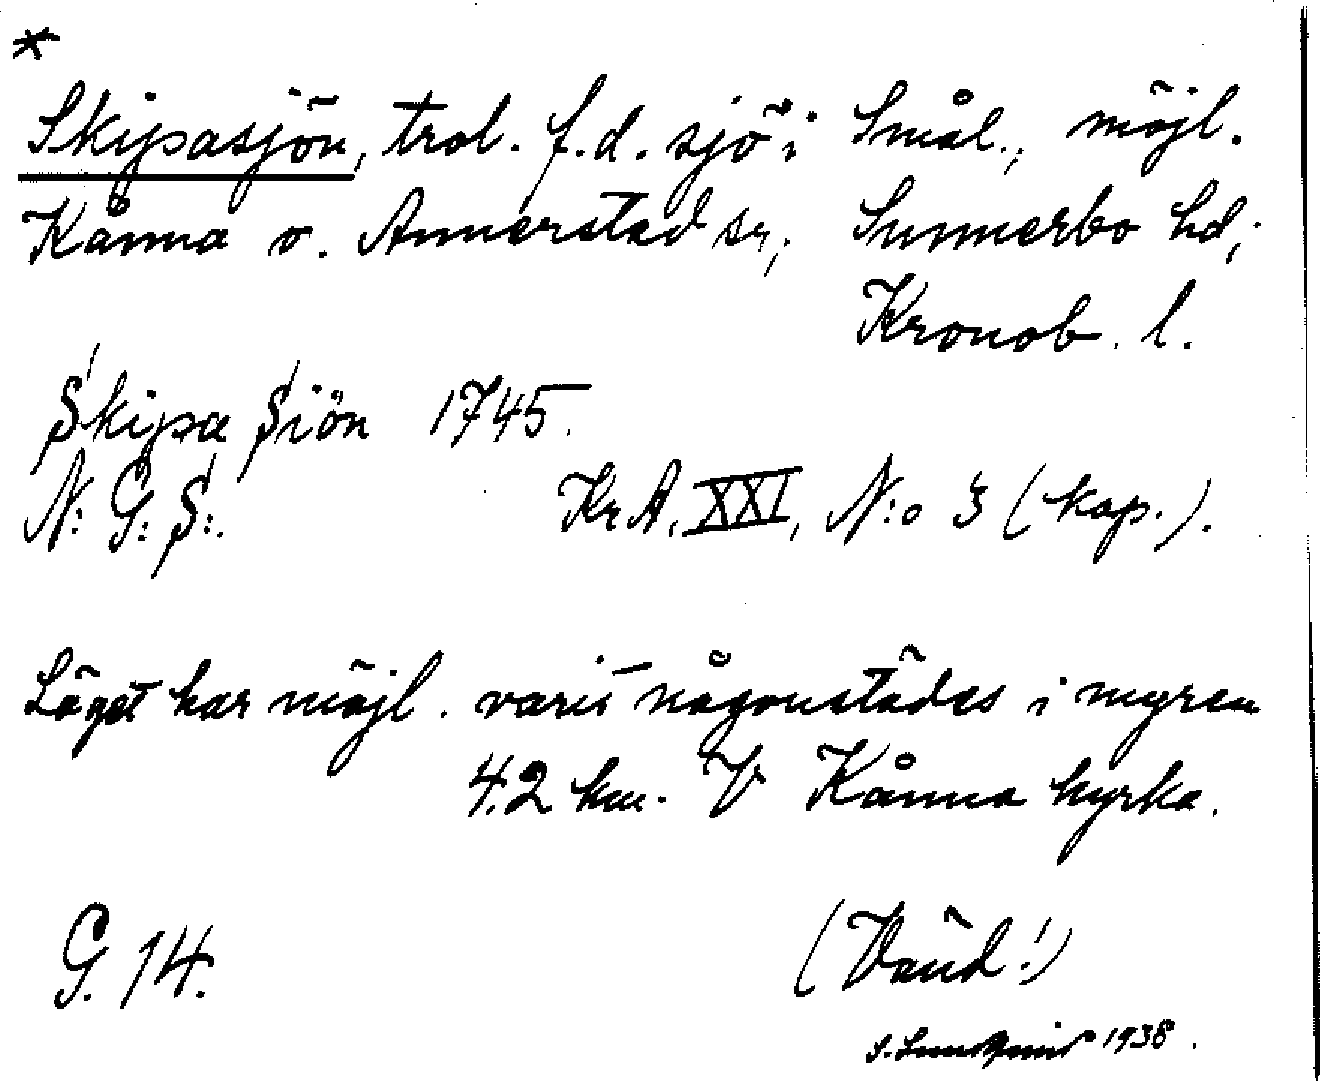 *
Skipasjön, trol. f.d. sjö i Smål., möjl.
Kånna o. Annerstad sr, Sunnerbo hd,
Kronob. l.
Skipa Siön 1745.
N: G: S:. Kr A. XXI, N:o 3 (kop.).
Läget har möjl. varit någonstädes i myren
4.2 km. V Kånna kyrka.
G. 14. (Vänd!)
S. Lundqvist 1938.